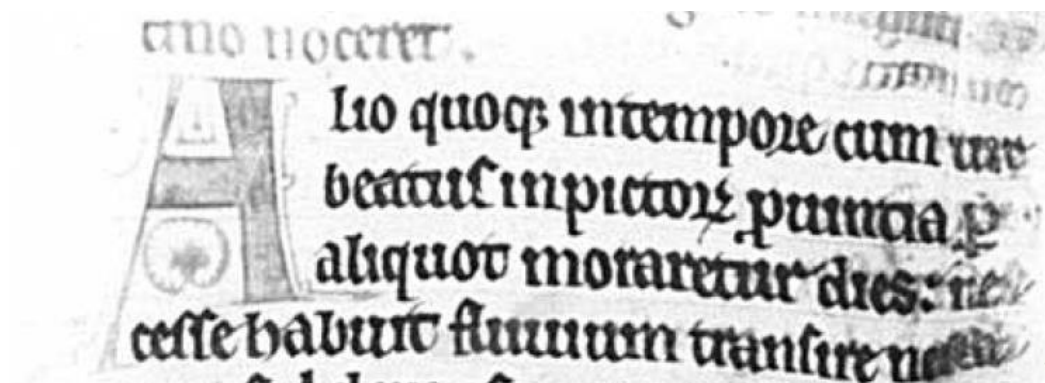 noceret.
Alio quoqꝫ intempore cum uir
beatuſ inpictoꝝ ꝓuintia ꝑ
aliquot moraretur dies: ne
ceſſe habuit fluuium tranſire